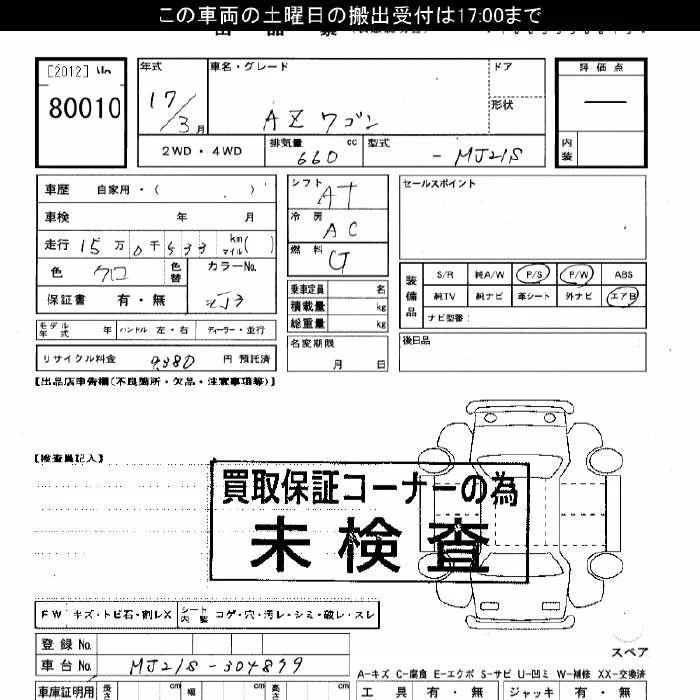 この車両の土曜日の搬出受付は17:00まで
[2012]
80010
年式 車名・グレード ドア 評価点
17/3月 AZワゴン 形状 —
2WD・4WD 排気量 660 cc 型式 -MJ21S 内装
車歴 自家用・( )
車検 年 月
走行 15万0千533 km マイル( )
色 クロ 色替 カラーNo. ZJ3
保証書 有・無
シフト AT
冷房 AC
燃料 G
乗車定員 名
積載量 kg
総重量 kg
名変期限 月 日
セールスポイント
装備品 S/R 純A/W P/S P/W ABS
純TV 純ナビ 革シート 外ナビ エアB
ナビ型番:
後日品
モデル年式 年 ハンドル 左・右 ディーラー・並行
リサイクル料金 9,380 円 預託済
【出品店申告欄(不良箇所・欠品・注意事項等)】
【検査員記入】
買取保証コーナーの為
未検査
FW キズ・トビ石・割レX シート内装 コゲ・穴・汚レ・シミ・破レ・スレ
登録 No.
車台 No. MJ21S-304899
スペア
A-キズ C-腐食 E-エクボ S-サビ U-凹ミ W-補修 XX-交換済
車庫証明用 長さ cm 幅 cm 高さ cm 工具 有・無 ジャッキ 有・無